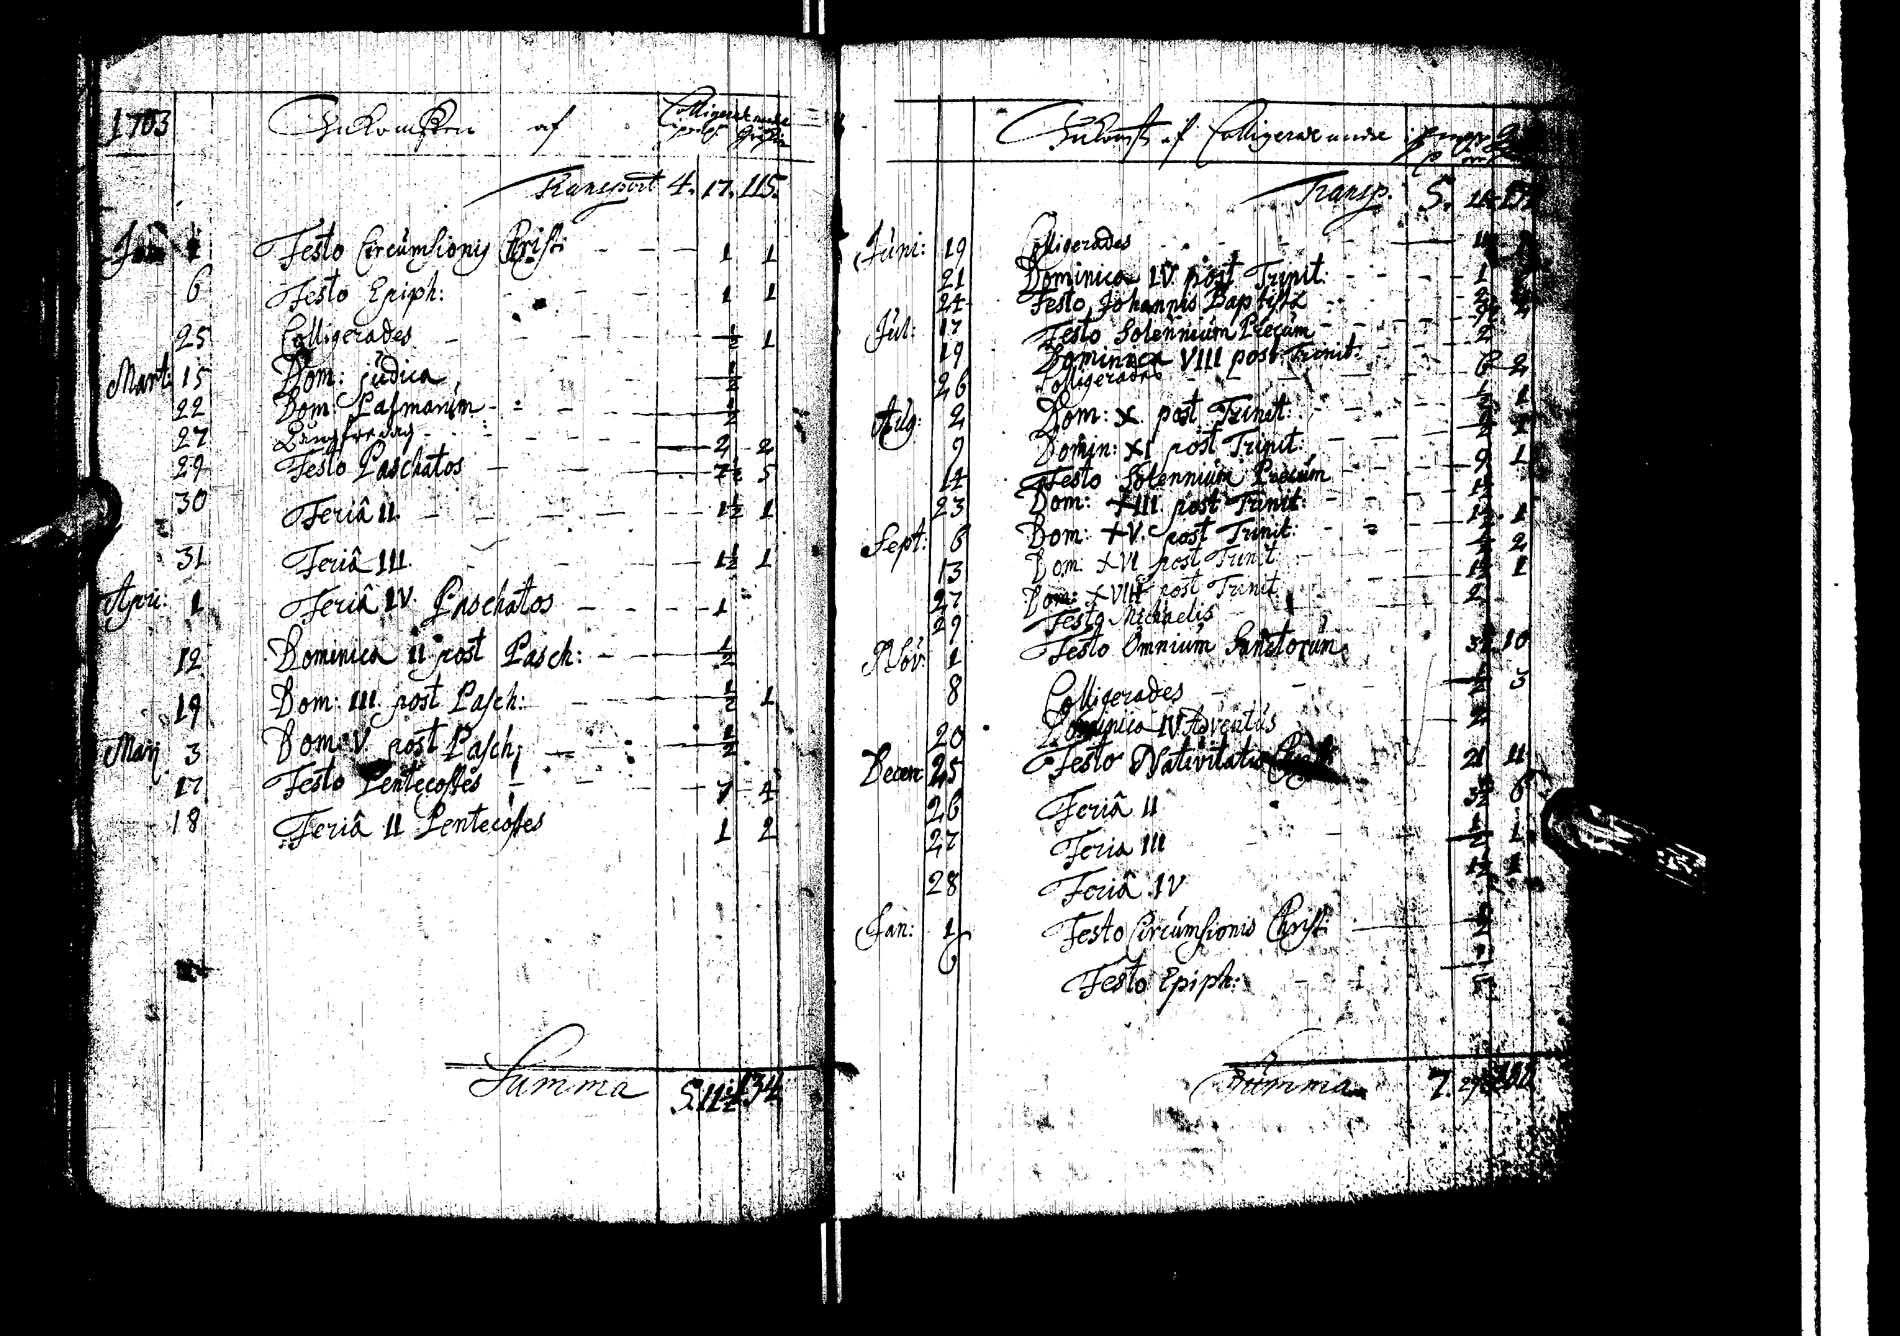 1703 Inkompsten af Colligerade
Transport 4. 17. 115.
Jan 1 Festo Circumsionis Christi 1 1
6 Festo Epiph: 1 1
25 Colligerades ½ 1
Mart: 15 Dom: judica ½
22 Dom: Palmarum ½
27 Långfredag 2 2
29 Festo Paschatos 7½ 5
30 Feriâ II 1½ 1
31 Feriâ III 1½ 1
Apri: 1 Feriâ IV Paschatos 1
12 Dominica II post Pasch: ½
19 Dom: III. post Pasch: ½ 1
Maij 3 Dom: V. post Pasch: ½
17 Festo Pentecostes 7 4
18 Feriâ II Pentecostes 1 2
Summa 5. 11½ 134
Inkomst af Colligerade
Transp. 5.
Juni: 19 Colligerades
21 Dominica IV post Trinit: 1
24 Festo Johannis Baptistæ
Jul: 17 Festo Solennium Precum
19 Dominica VIII post Trinit: 2
26 Colligerades 6 2
Aug: 2 Dom: X post Trinit: 1
9 Domin: XI post Trinit:
14 Festo Solennium Precum 9 1
23 Dom: XIII post Trinit:
Sept: 6 Dom: XV. post Trinit: 1
13 Dom: XVI post Trinit 2
27 Dom: XVIII post Trinit 1
29 Festo Michaelis 2
Nov: 1 Festo Omnium Sanctorum 10
8 Colligerades 3
20 Dominica IV Adventus
Decem: 25 Festo Nativitatis 21 11
26 Feriâ II 3½ 6
27 Feria III ½ 1
28 Feriâ IV 1½ 1
Jan: 1 Festo Circumsionis Christi
6 Festo Epiph:
Summa 7.